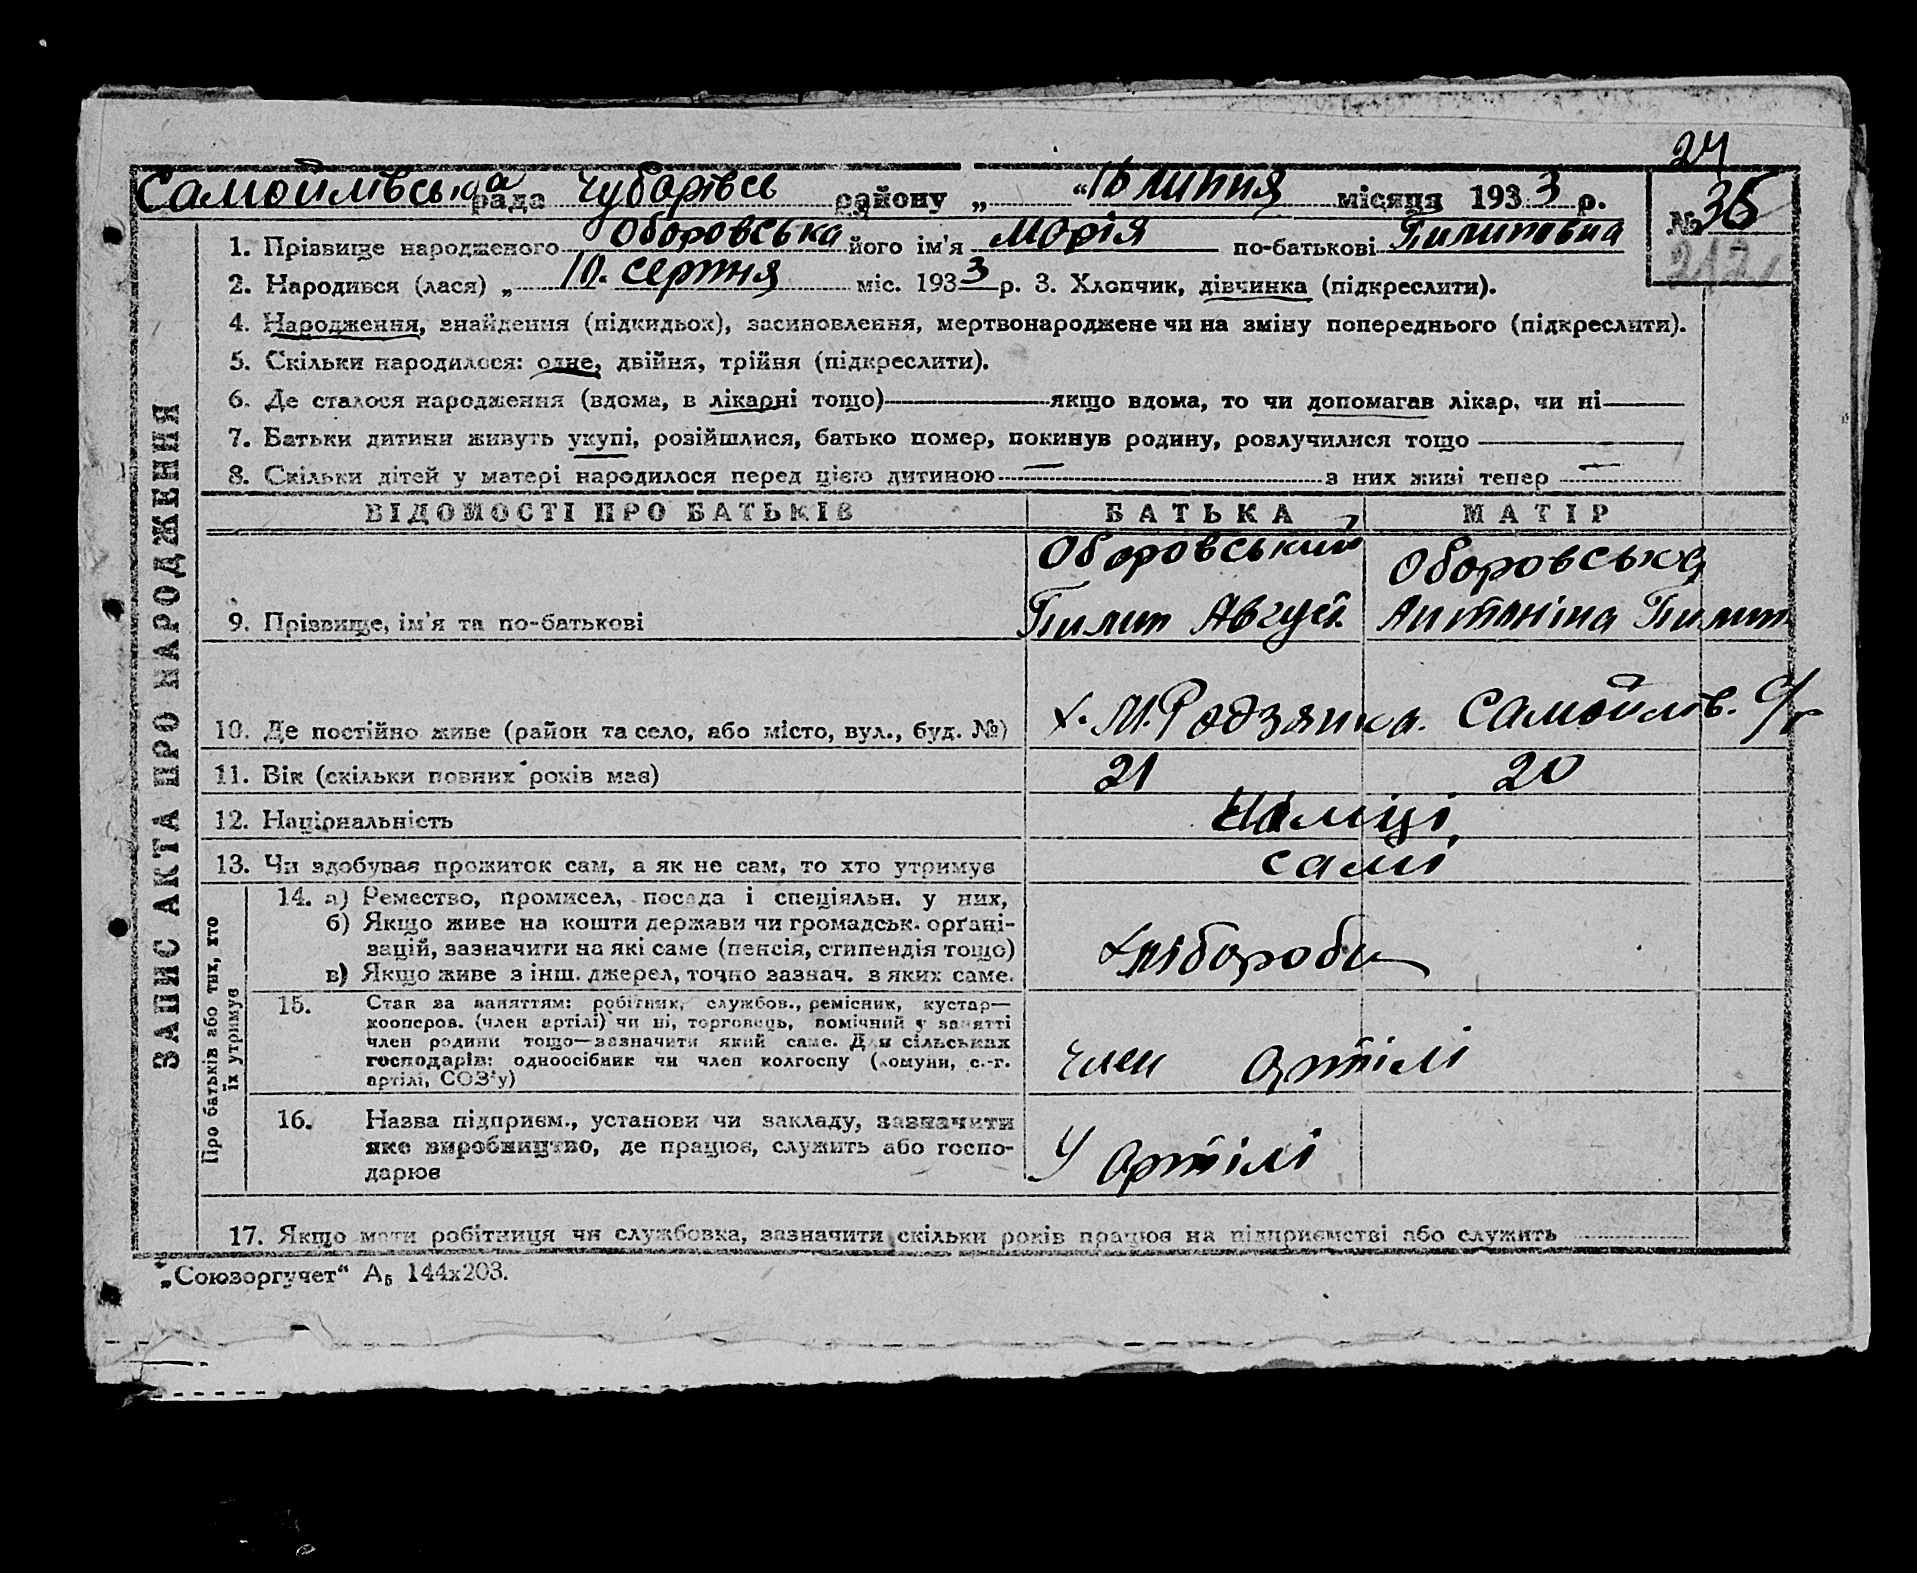 24
Самойлівська рада Чубарівськ району „ “ 16 липня місяця 1933 р. № 36
1. Прізвище народженого Оборовська його ім'я Марія по-батькові Пилиповна
212
2. Народився (лася) „ 10. серпня міс. 1933 р. 3. Хлопчик, дівчинка (підкреслити).
4. Народження, знайдення (підкидьок), засиновлення, мертвонароджене чи на зміну попереднього (підкреслити).
5. Скільки народилося: одне, двійня, трійня (підкреслити).
6. Де сталося народження (вдома, в лікарні тощо) якщо вдома, то чи допомагав лікар, чи ні
7. Батьки дитини живуть укупі, розійшлися, батько помер, покинув родину, розлучилися тощо
8. Скільки дітей у матері народилося перед цією дитиною — з них живі тепер —
ЗАПИС АКТА ПРО НАРОДЖЕННЯ
ВІДОМОСТІ ПРО БАТЬКІВ БАТЬКА МАТІР
Оборовський Оборовська
9. Прізвище, ім'я та по-батькові Пилип Август. Антаніна Пилип.
10. Де постійно живе (район та село, або місто, вул., буд. №) х. М. Родзянка. Самойлів. С/р
11. Вік (скільки повних років має) 21 20
12. Національність німці
13. Чи здобуває прожиток сам, а як не сам, то хто утримує самі
Про батьків або тих, хто їх утримує
14. а) Ремество, промисел, посада і спеціяльн. у них,
б) Якщо живе на кошти держави чи громадськ. орґані-
зацій, зазначити на які саме (пенсія, стипендія тощо) хлібороби
в) Якщо живе з інш. джерел, точно зазнач. з яких саме.
15. Стан за заняттям: робітник, службов., ремісник, кустар—
кооперов. (член артілі) чи ні, торговець, помічний у занятті
член родини тощо—зазначити який саме. Для сільських
господарів: одноосібник чи член колгоспу (комуни, с.-г. член артілі
артілі, СОЗ'у)
16. Назва підприєм., установи чи закладу, зазначити
яке виробництво, де працює, служить або госпо- у артілі
дарює
17. Якщо мати робітниця чи службовка, зазначити скільки років працює на підприємстві або служить
„Союзоргучет“ А5 144х203.